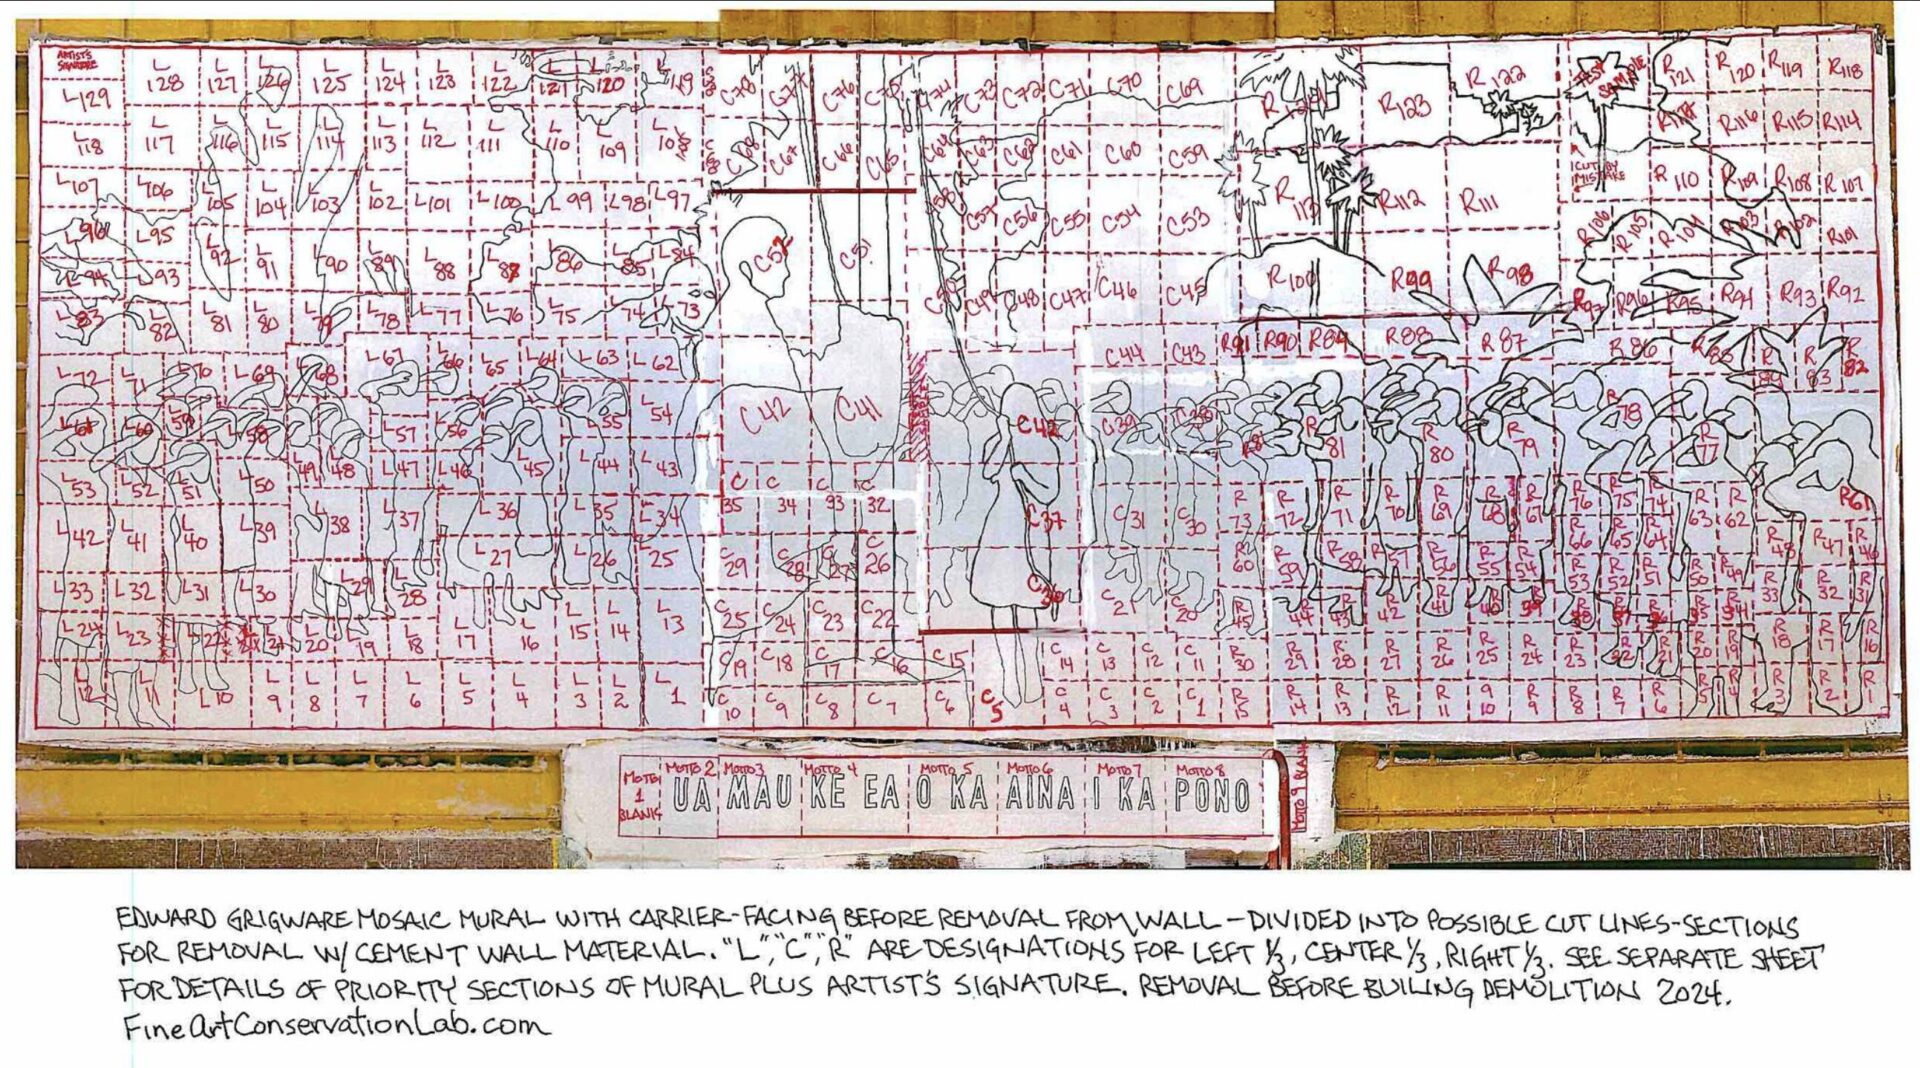 ARTIST'S SIGNATURE
L129 L128 L127 L126 L125 L124 L123 L122 L121 L120 L119
L118 L117 L116 L115 L114 L113 L112 L111 L110 L109 L108
L107 L106 L105 L104 L103 L102 L101 L100 L99 L98 L97
L96 L95 L92 L91 L90 L89 L88 L87 L86 L85 L84
L94 L93
L83 L82 L81 L80 L79 L78 L77 L76 L75 L74 L73
L72 L71 L70 L69 L68 L67 L66 L65 L64 L63 L62
L61 L60 L59 L58 L57 L56 L55 L54
L53 L52 L51 L50 L49 L48 L47 L46 L45 L44 L43
L42 L41 L40 L39 L38 L37 L36 L35 L34
L33 L32 L31 L30 L29 L28 L27 L26 L25
L24 L23 L22 L21 L20 L19 L18 L17 L16 L15 L14 L13
L12 L11 L10 L9 L8 L7 L6 L5 L4 L3 L2 L1
C78 C77 C76 C75 C74 C73 C72 C71 C70 C69
C68 C67 C66 C65 C64 C63 C62 C61 C60 C59
C58 C57 C56 C55 C54 C53
C52 C51 C50 C49 C48 C47 C46 C45
C44 C43
C42 C41 C42 C39 C38
C35 C34 C33 C32 C37 C31 C30
C29 C28 C27 C26 C36
C25 C24 C23 C22 C21 C20
C19 C18 C17 C16 C15 C14 C13 C12 C11
C10 C9 C8 C7 C6 C5 C4 C3 C2 C1
R124 R123 R122 TEST SAMPLE R121 R120 R119 R118
R117 R116 R115 R114
CUT BY MISTAKE
R113 R112 R111 R110 R109 R108 R107
R106 R105 R104 R103 R102 R101
R100 R99 R98 R97 R96 R95 R94 R93 R92
R91 R90 R89 R88 R87 R86 R85 R84 R83 R82
R81 R80 R79 R78 R77
R73 R72 R71 R70 R69 R68 R67 R76 R75 R74 R63 R62 R61
R66 R65 R64
R60 R59 R58 R57 R56 R55 R54 R53 R52 R51 R50 R49 R48 R47 R46
R45 R44 R43 R42 R41 R40 R39 R38 R37 R36 R35 R34 R33 R32 R31
R30 R29 R28 R27 R26 R25 R24 R23 R22 R21 R20 R19 R18 R17 R16
R15 R14 R13 R12 R11 R10 R9 R8 R7 R6 R5 R4 R3 R2 R1
MOTTO 1 BLANK MOTTO 2 MOTTO 3 MOTTO 4 MOTTO 5 MOTTO 6 MOTTO 7 MOTTO 8 MOTTO 9 BLANK
UA MAU KE EA O KA AINA I KA PONO
EDWARD GRIGWARE MOSAIC MURAL WITH CARRIER-FACING BEFORE REMOVAL FROM WALL – DIVIDED INTO POSSIBLE CUT LINES-SECTIONS
FOR REMOVAL W/ CEMENT WALL MATERIAL. "L", "C", "R" ARE DESIGNATIONS FOR LEFT ⅓, CENTER ⅓, RIGHT ⅓. SEE SEPARATE SHEET
FOR DETAILS OF PRIORITY SECTIONS OF MURAL PLUS ARTIST'S SIGNATURE. REMOVAL BEFORE BUILING DEMOLITION 2024.
FineArtConservationLab.com